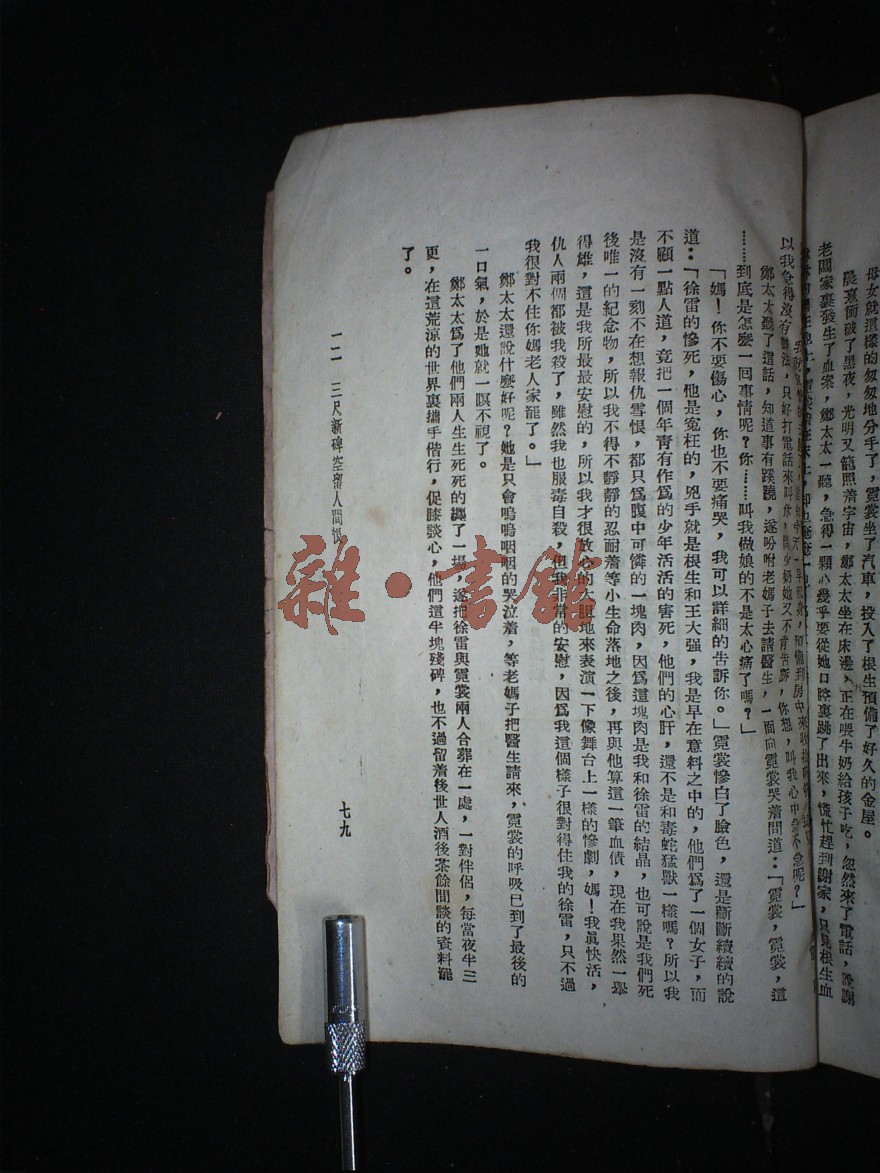 母女就這樣的匆匆地分手了，霓裳坐了汽車，投入了根生預備了好久的金屋。
晨熹衝破了黑夜，光明又籠照着宇宙，鄭太太坐在床邊，正在喂牛奶給孩子吃，忽然來了電話，說謝
老闆家裏發生了血案，鄭太太一聽，急得一顆心幾乎要從她口腔裏跳了出來，慌忙趕到謝家，只見根生血
以我急得沒有辦法，只好打電話來叫你，問少奶她又不肯告訴，你想，叫我心中急不急呢？」
鄭太太聽了這話，知道事有蹊蹺，遂吩咐老媽子去請醫生，一面向霓裳哭着問道：「霓裳，霓裳，這
……到底是怎麼一囘事情呢？你……叫我做娘的不是太心痛了嗎？」
「媽！你不要傷心，你也不要痛哭，我可以詳細的告訴你。」霓裳慘白了臉色，還是斷斷續續的說
道：「徐雷的慘死，他是寃枉的，兇手就是根生和王大强，我是早在意料之中的，他們爲了一個女子，而
不顧一點人道，竟把一個年青有作爲的少年活活的害死，他們的心肝，還不是和毒蛇猛獸一樣嗎？所以我
是沒有一刻不在想報仇雪恨，都只爲腹中可憐的一塊肉，因爲這塊肉是我和徐雷的結晶，也可說是我們死
後唯一的紀念物，所以我不得不靜靜的忍耐着等小生命落地之後，再與他算這一筆血債，現在我果然一舉
得雄，這是我所最最安慰的，所以我才很放心的大胆地來表演一下像舞台上一樣的慘劇，媽！我眞快活，
仇人兩個都被我殺了，雖然我也服毒自殺，但我非常的安慰，因爲我這個樣子很對得住我的徐雷，只不過
我很對不住你媽老人家罷了。」
鄭太太還說什麼好呢？她是只會嗚嗚咽咽的哭泣着，等老媽子把醫生請來，霓裳的呼吸已到了最後的
一口氣，於是她就一瞑不視了。
鄭太太爲了他們兩人生生死死的纏了一場，遂把徐雷與霓裳兩人合葬在一處，一對伴侶，每當夜半三
更，在這荒涼的世界裏攜手偕行，促膝談心，他們這半塊殘碑，也不過留着後世人酒後茶餘閒談的資料罷
了。
一二　三尺新碑空留人間恨
七九
雜·書館